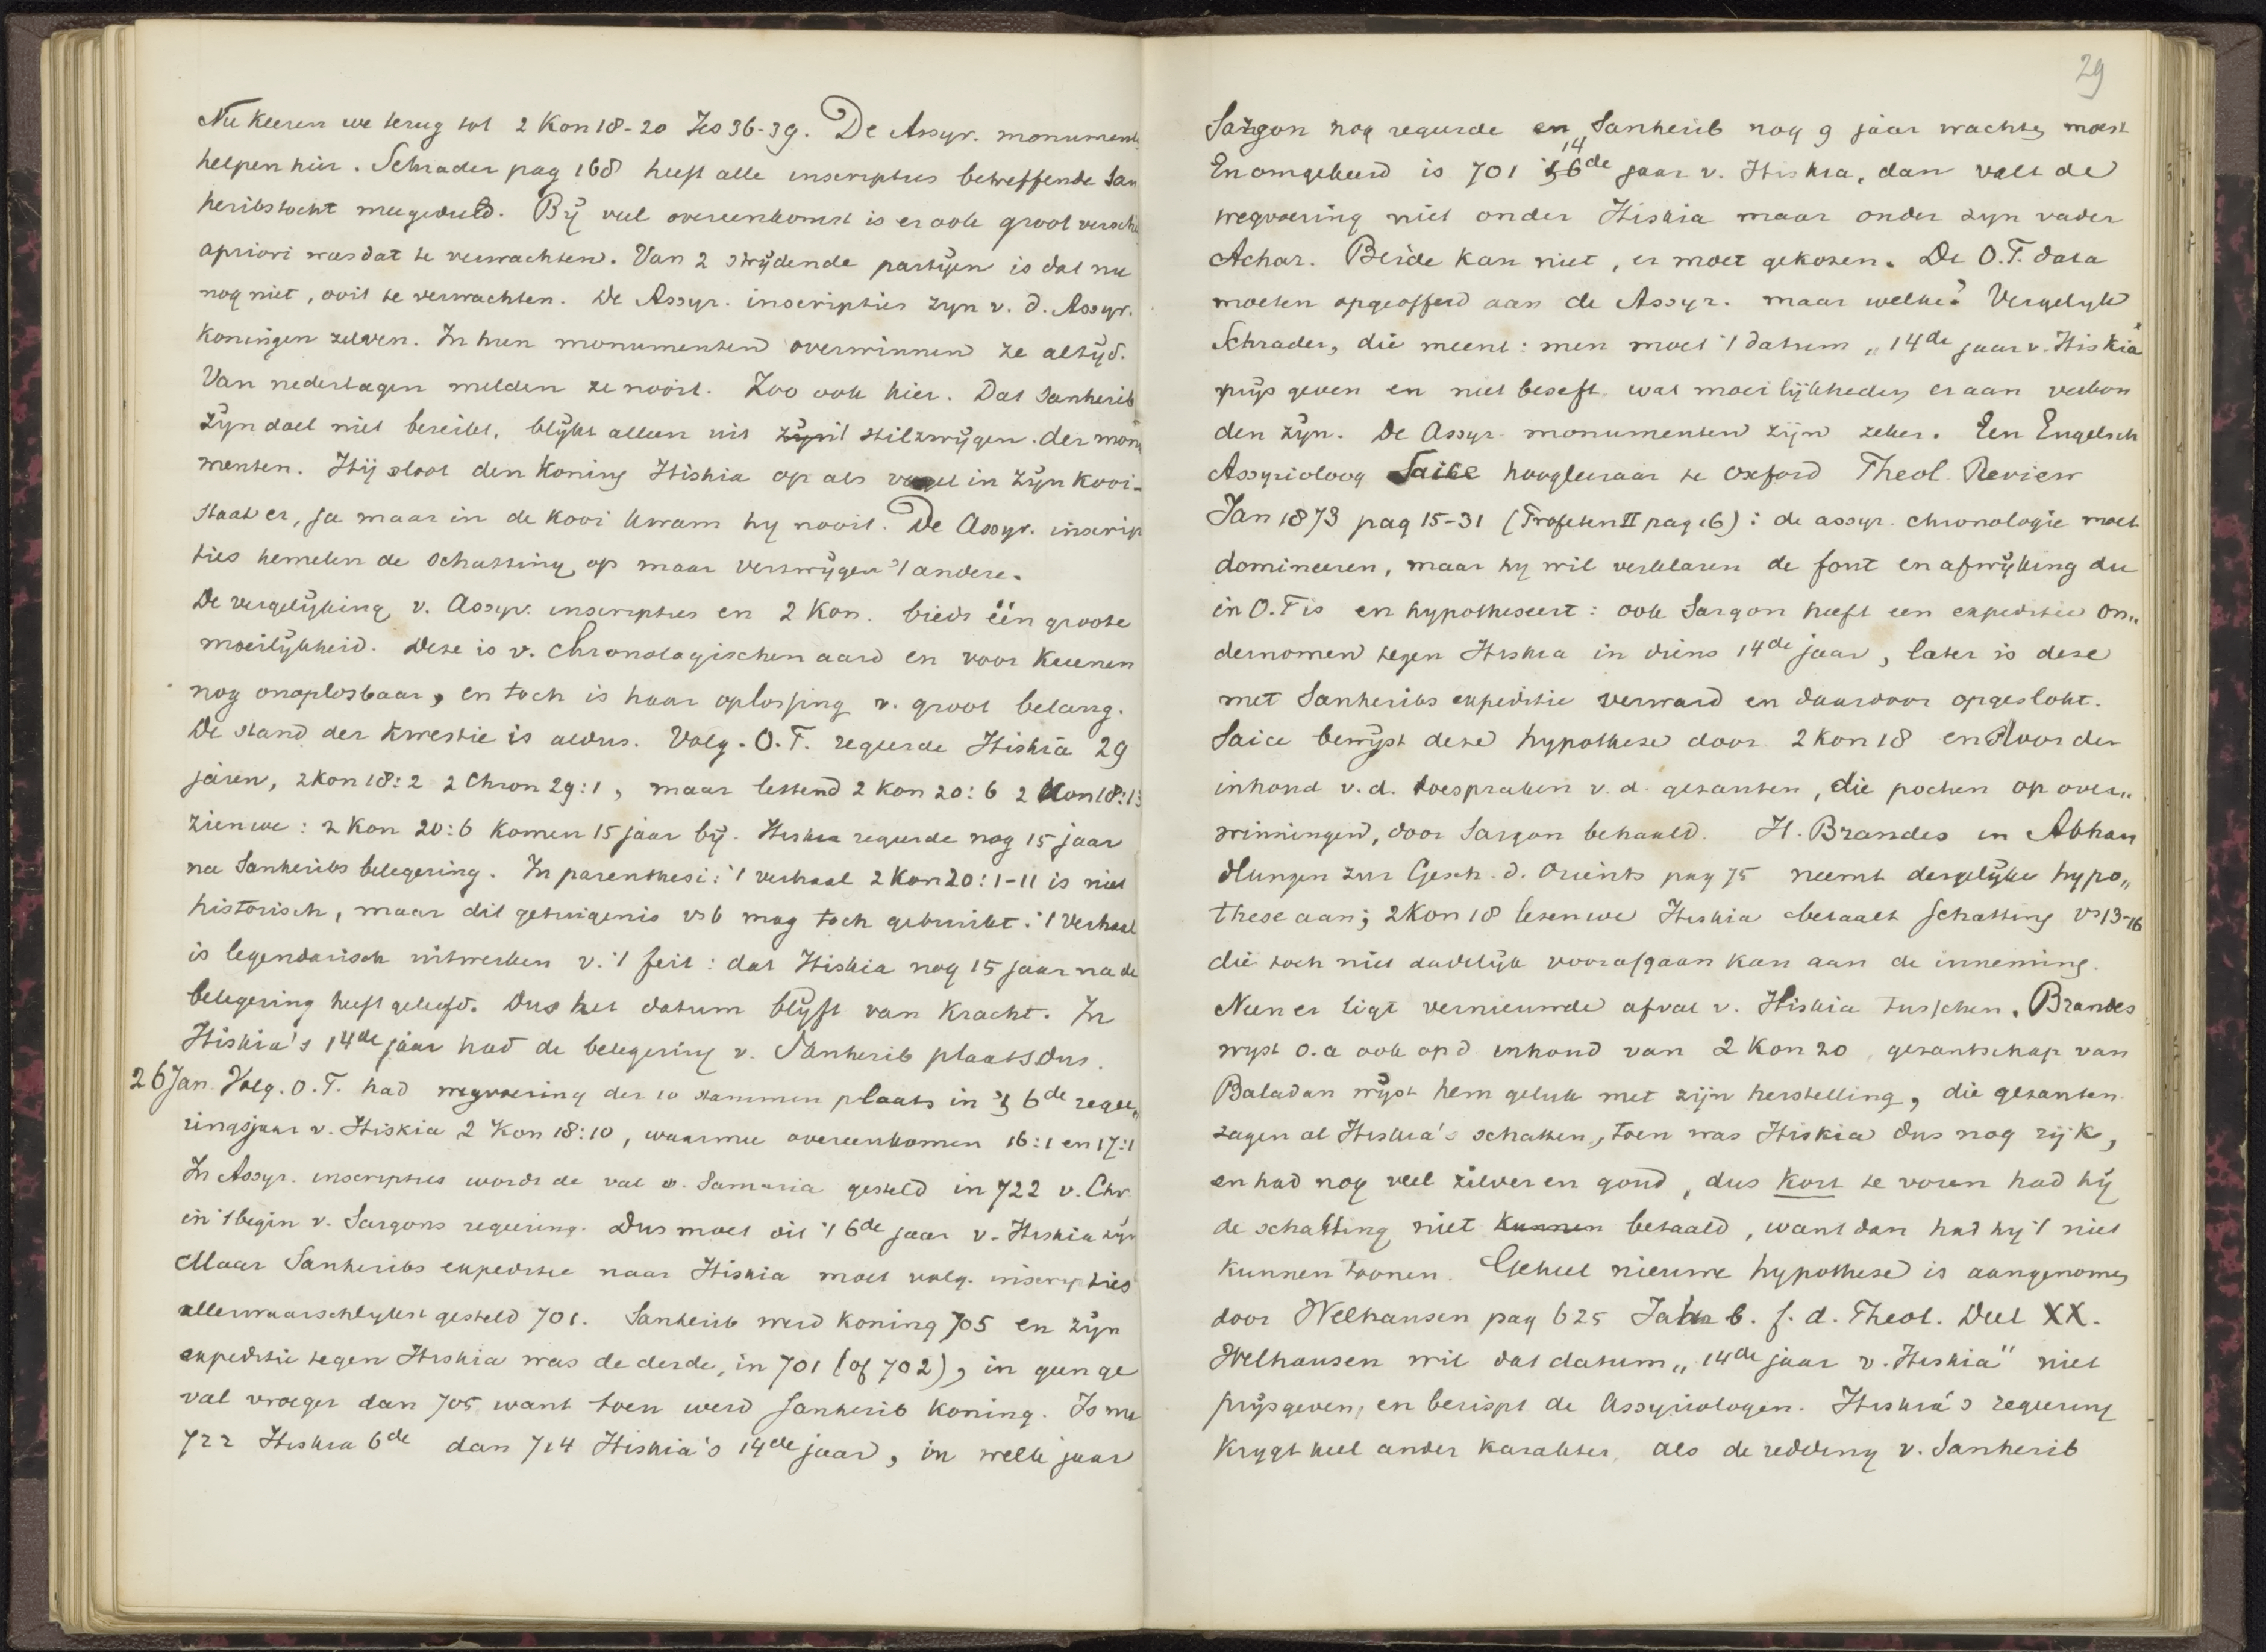 Nu keeren we terug tot 2 Kon 18-20 Jes 36-39. De Assyr. monumente
helpen hier. Schrader pag 168 heeft alle inscripties betreffende San
heribs tocht meegedeeld. Bÿ veel overeenkomst is er ook groot verschil
apriori was dat te verwachten. Van 2 strÿdende partÿen is dat nu
nog niet, ooit te verwachten. De Assyr. inscripties zyn v. d. Assyr.
koningen zelven. In hun monumenten overwinnen ze altÿd.
Van nederlagen melden ze nooit. Zoo ook hier. Dat Sanherib
zÿn doel niet bereikt, blÿkt alleen uit 't stilzwÿgen der monu
menten. Hij sloot den koning Hiskia op als vogel in zÿn kooi-
staat er, ja maar in de kooi kwam hy nooit. De Assyr. inscrip
ties hemelen de schatting op maar verzwÿgen 't andere.
De vergelÿking v. Assyr. inscripties en 2 Kon. biedt één groote
moeilÿkheid. Deze is v. chronologischen aard en voor Kuenen
nog onoplosbaar, en toch is haar oplossing v. groot belang.
De stand der kwestie is aldus. Volg. O.T. regeerde Hiskia 29
jaren, 2 Kon 18:2 2 Chron 29:1, maar lettend 2 Kon 20:6 2 Kon 18:13
zien we: 2 Kon 20:6 komen 15 jaar bÿ. Hiskia regeerde nog 15 jaar
na Sanheribs belegering. In parenthesi: 't verhaal 2 Kon 20:1-11 is niet
historisch, maar dit getuigenis vs 6 mag toch gebruikt: 't verhaal
is legendarisch uitwerken v. 't feit: dat Hiskia nog 15 jaar na de
belegering heeft geleefd. Dus het datum blÿft van kracht. In
Hiskia's 14de jaar had de belegering v. Sanherib plaats dus.
26 Jan. Volg. O.T. had wegvoering der 10 stammen plaats in 't 6de regee„
ringsjaar v. Hiskia 2 Kon 18:10, waarmee overeenkomen 16:1 en 17:1
In Assyr. inscripties wordt de val v. Samaria gesteld in 722 v. Chr.
in 't begin v. Sargons regeering. Dus moet dit 't 6de jaar v. Hiskia zÿn
Maar Sanheribs expeditie naar Hiskia moet volg. inscripties
allerwaarschlykst gesteld 701. Sanherib werd koning 705 en zÿn
expeditie tegen Hiskia was de derde, in 701 (of 702), in geen ge
val vroeger dan 705 want toen werd Sanherib koning. Is nu
722 Hiskia 6de dan 714 Hiskia's 14de jaar, in welk jaar
29
Sargon nog regeerde en Sanherib nog 9 jaar wachten moest
14
En omgekeerd is 701 't 6de jaar v. Hiskia, dan valt de
wegvoering niet onder Hiskia maar onder zyn vader
Achaz. Beide kan niet, er moet gekozen. De O.T. data
moeten opgeofferd aan de Assyr. maar welke? Vergelyk
Schrader, die meent: men moet 't datum „14de jaar v. Hiskia"
prÿs geven en niet beseft wat moeilÿkheden er aan verbon
den zÿn. De Assyr. monumenten zijn zeker. Een Engelsch
Assyrioloog Saice hoogleeraar te Oxford Theol. Review
Jan 1873 pag 15-31 (Profeten II pag 16): de assyr. chronologie moet
domineeren, maar hy wil verklaren de fout en afwÿking die
in O.T is en hypotheseert: ook Sargon heeft een expeditie on„
dernomen tegen Hiskia in diens 14de jaar, later is deze
met Sanheribs expeditie verward en daardoor opgeslokt.
Saice bewÿst deze hypothese door 2 Kon 18 en door den
inhoud v. d. toespraken v. d. gezanten, die pochen op over„
winningen, door Sargon behaald. H. Brandes in Abhan
dlungen zur Gesch. d. Orients pag 75 neemt dergelÿke hypo„
these aan; 2 Kon 18 lezen we Hiskia betaalt schatting vs 13-16
die toch niet dadelÿk voorafgaan kan aan de inneming.
Neen er ligt vernieuwde afval v. Hiskia tusschen. Brandes
wyst o.a ook op d inhoud van 2 Kon 20, gezantschap van
Baladan wÿst hem geluk met zijn herstelling, die gezanten
zagen al Hiskia's schatten, toen was Hiskia dus nog rijk,
en had nog veel zilver en goud, dus kort te voren had hÿ
de schatting niet kunnen betaald, want dan had hy 't niet
kunnen toonen. Geheel nieuwe hypothese is aangenomen
door Welhausen pag 625 Jahrb. f. d. Theol. Deel XX.
Welhausen wil dat datum „14de jaar v. Hiskia" niet
prÿsgeven, en berispt de Assyriologen. Hiskia's regeering
krygt heel ander karakter, als de redding v. Sanherib